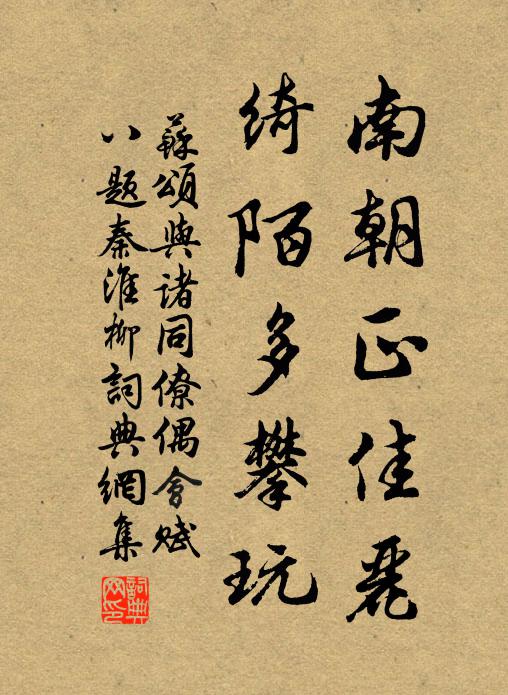 南朝正佳麗
綺陌多攀玩
蘇頌與諸同僚偶會賦
八題秦淮柳詞典網集
詞典
网印